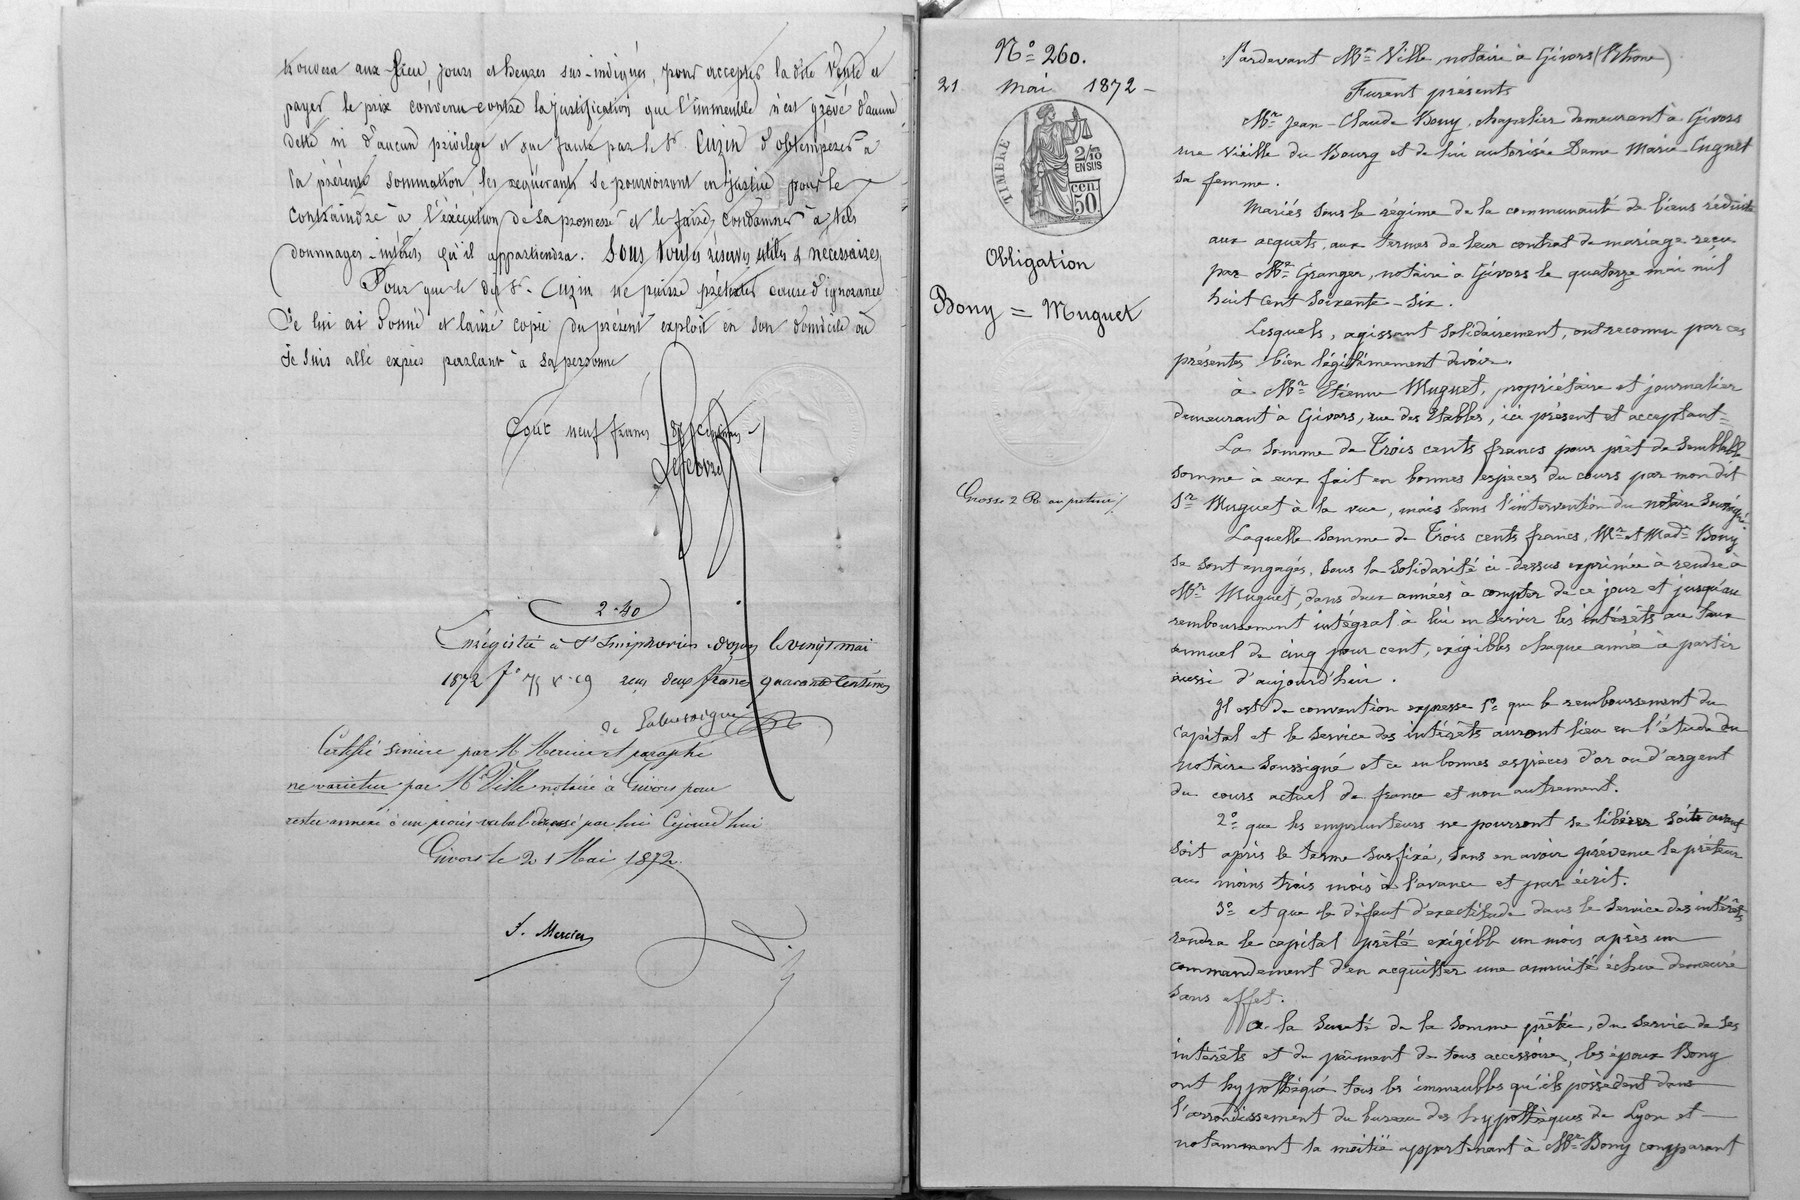 trouvera aux lieu, jours et heures sus-indiqués, pour accepter la dite vente et
payer le prix convenu contre la justification que l'immeuble n'est grévé d'aucune
dette ni d'aucun privilège et que faute par le Sr. Cuzin d'obtempérer à
la présente sommation, les requérants se pourvoiront en justice pour le
contraindre à l'exécution de sa promesse et le faire condamner à tels
dommages-intérêts qu'il appartiendra. Sous toutes réserves utiles & nécessaires
Pour que le dit Sr. Cuzin ne puisse prétexter cause d'ignorance
Je lui ai donné et laissé copie du présent exploit en son domicile où
Je suis allé exprès parlant à sa personne
Coût neuf francs centimes
Lefebvre
2.40
Enregistré à St Simphorien d'ozon le vingt mai
1872 fo 75 vo c9 reçu deux francs quarante centimes
Certifié sincère par M. Mercier et paraphé
ne varietur par Me Ville notaire à Givors pour
rester annexé à un procès verbal dressé par lui Cejourd'hui
Givors le 21 Mai 1872.
J. Mercier
No 260.
21 mai 1872 -
TIMBRE
2/10 EN SUS
cen. 50
Obligation
Bony = Muguet
Grosse 2 Ro au prêteur
Pardevant Me Ville, notaire à Givors (Rhône)
Furent présents
Mr Jean-Claude Bony, chapelier demeurant à Givors
rue vieille du Bourg et de lui autorisée Dame Marie Cugnet
sa femme.
Mariés sous le régime de la communauté de biens réduite
aux acquets, aux termes de leur contrat de mariage reçu
par Me Granger, notaire à Givors le quatorze mai mil
huit cent soixante-six.
Lesquels, agissant solidairement, ont reconnu par ces
présentes bien légitimement devoir.
à Mr Etienne Muguet, propriétaire et journalier
demeurant à Givors, rue des Etables, ici présent et acceptant=
La somme de Trois cents francs pour prêt de semblable
somme à eux fait en bonnes espèces du cours par mon dit
Sr Muguet à la vue, mais sans l'intervention du notaire soussigné.
Laquelle somme de Trois cents francs, Mr et Made Bony
se sont engagés, sous la solidarité ci-dessus exprimée à rendre à
Mr Muguet, dans deux années à compter de ce jour et jusqu'au
remboursement intégral à lui en servir les intérêts au taux
annuel de cinq pour cent, exigibles chaque année à partir
aussi d'aujourd'hui.
Il est de convention expresse 1o que le remboursement du
capital et le service des intérêts auront lieu en l'étude du
notaire soussigné et ce en bonnes espèces d'or ou d'argent
du cours actuel de france et non autrement.
2o que les emprunteurs ne pourront se libérer soit avant
soit après le terme susfixé, sans en avoir prévenu le prêteur
au moins trois mois à l'avance et par écrit.
3o et que le défaut d'exactitude dans le service des intérêts
rendra le capital prêté exigible un mois après un
commandement d'en acquitter une annuité échue demeuré
sans effet.
A la sureté de la somme prêtée, du service de ses
intérêts et du paiement de tous accessoires, les époux Bony
ont hypothéqué tous les immeubles qu'ils possèdent dans
l'arrondissement du bureau des hypothèques de Lyon et
notamment la moitié appartenant à Mr Bony comparant